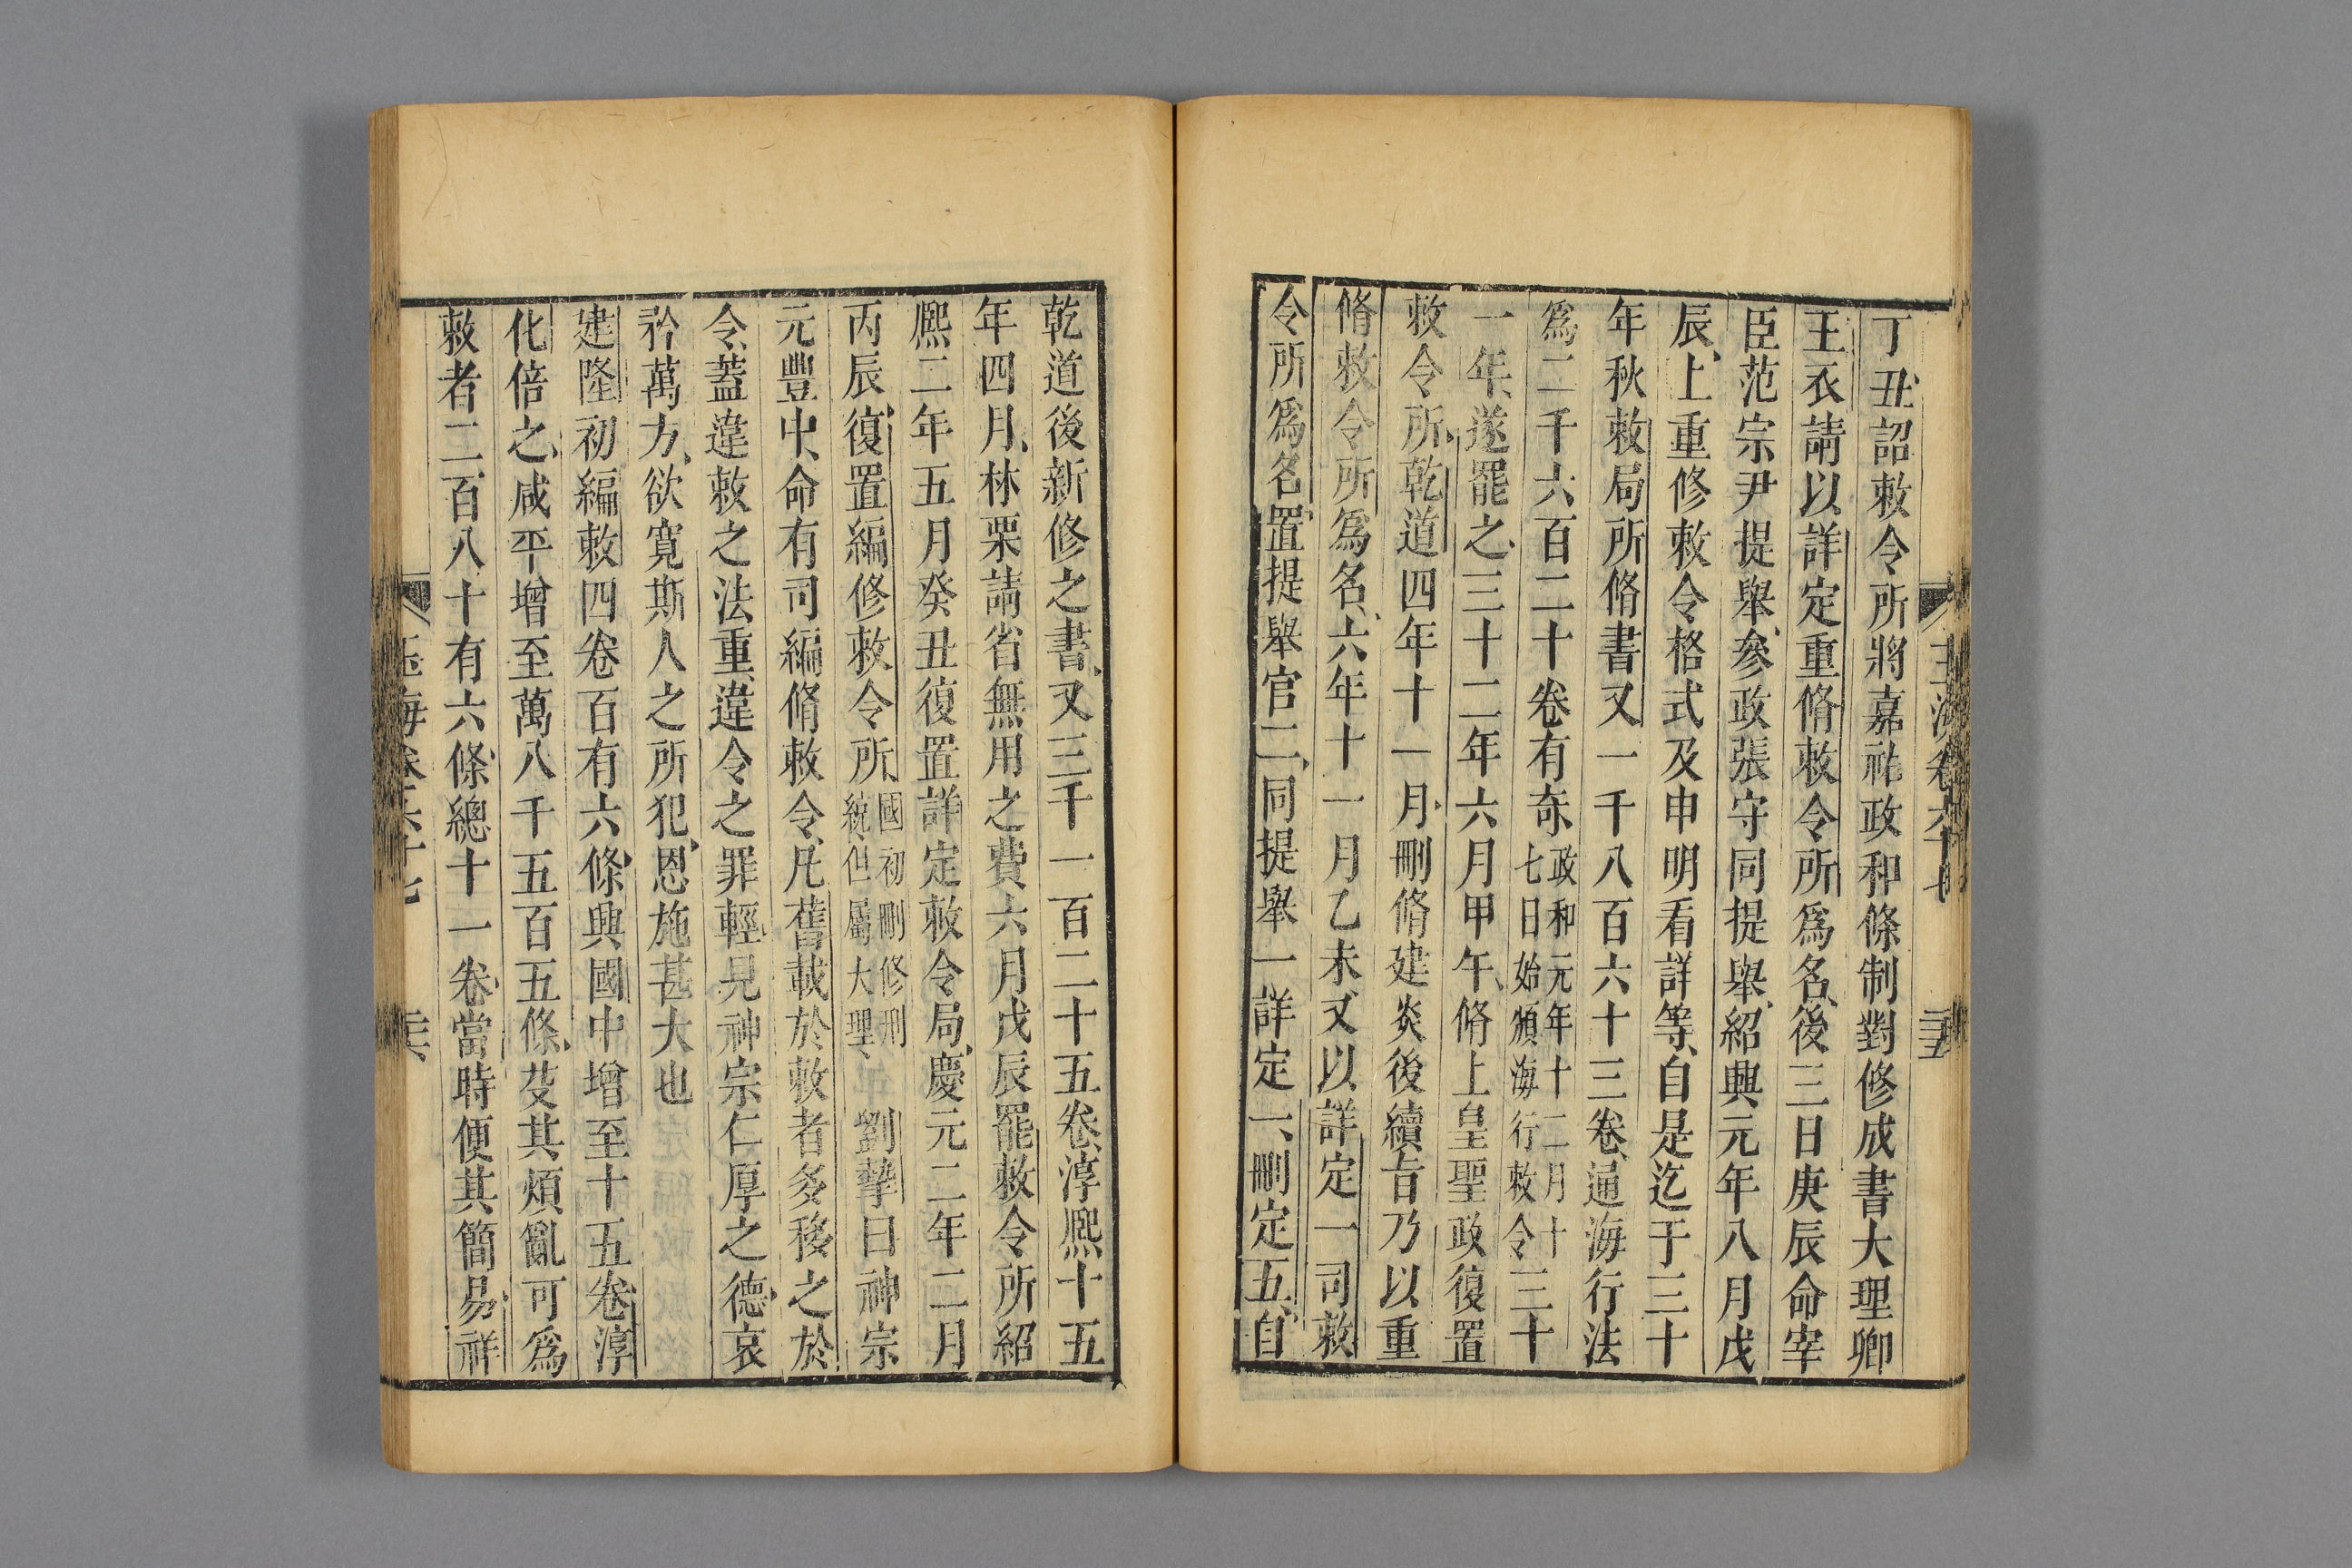 玉海卷六十七 三五
丁丑詔敕令所將嘉祐政和條制對修成書大理卿
王衣請以詳定重脩敕令所爲名後三日庚辰命宰
臣范宗尹提舉參政張守同提舉紹興元年八月戊
辰上重修敕令格式及申明看詳等自是迄于三十
年秋敕局所脩書又一千八百六十三卷通海行法
爲二千六百二十卷有奇政和元年十二月十七日始頒海行敕令三十
一年遂罷之三十二年六月甲午脩上皇聖政復置
敕令所乾道四年十一月刪脩建炎後續旨乃以重
脩敕令所爲名六年十一月乙未又以詳定一司敕
令所爲名置提舉官二同提舉一詳定一刪定五自
乾道後新修之書又三千一百二十五卷淳熙十五
年四月林栗請省無用之費六月戊辰罷敕令所紹
熙二年五月癸丑復置詳定敕令局慶元二年二月
丙辰復置編修敕令所國初刪修刑統但屬大理 劉摯曰神宗
元豐中命有司編脩敕令凡舊載於敕者多移之於
令蓋違敕之法重違令之罪輕見神宗仁厚之德哀
矜萬方欲寬斯人之所犯恩施甚大也
建隆初編敕四卷百有六條興國中增至十五卷淳
化倍之咸平增至萬八千五百五條芟其煩亂可爲
敕者二百八十有六條總十一卷當時便其簡易祥
玉海卷六十七 三六